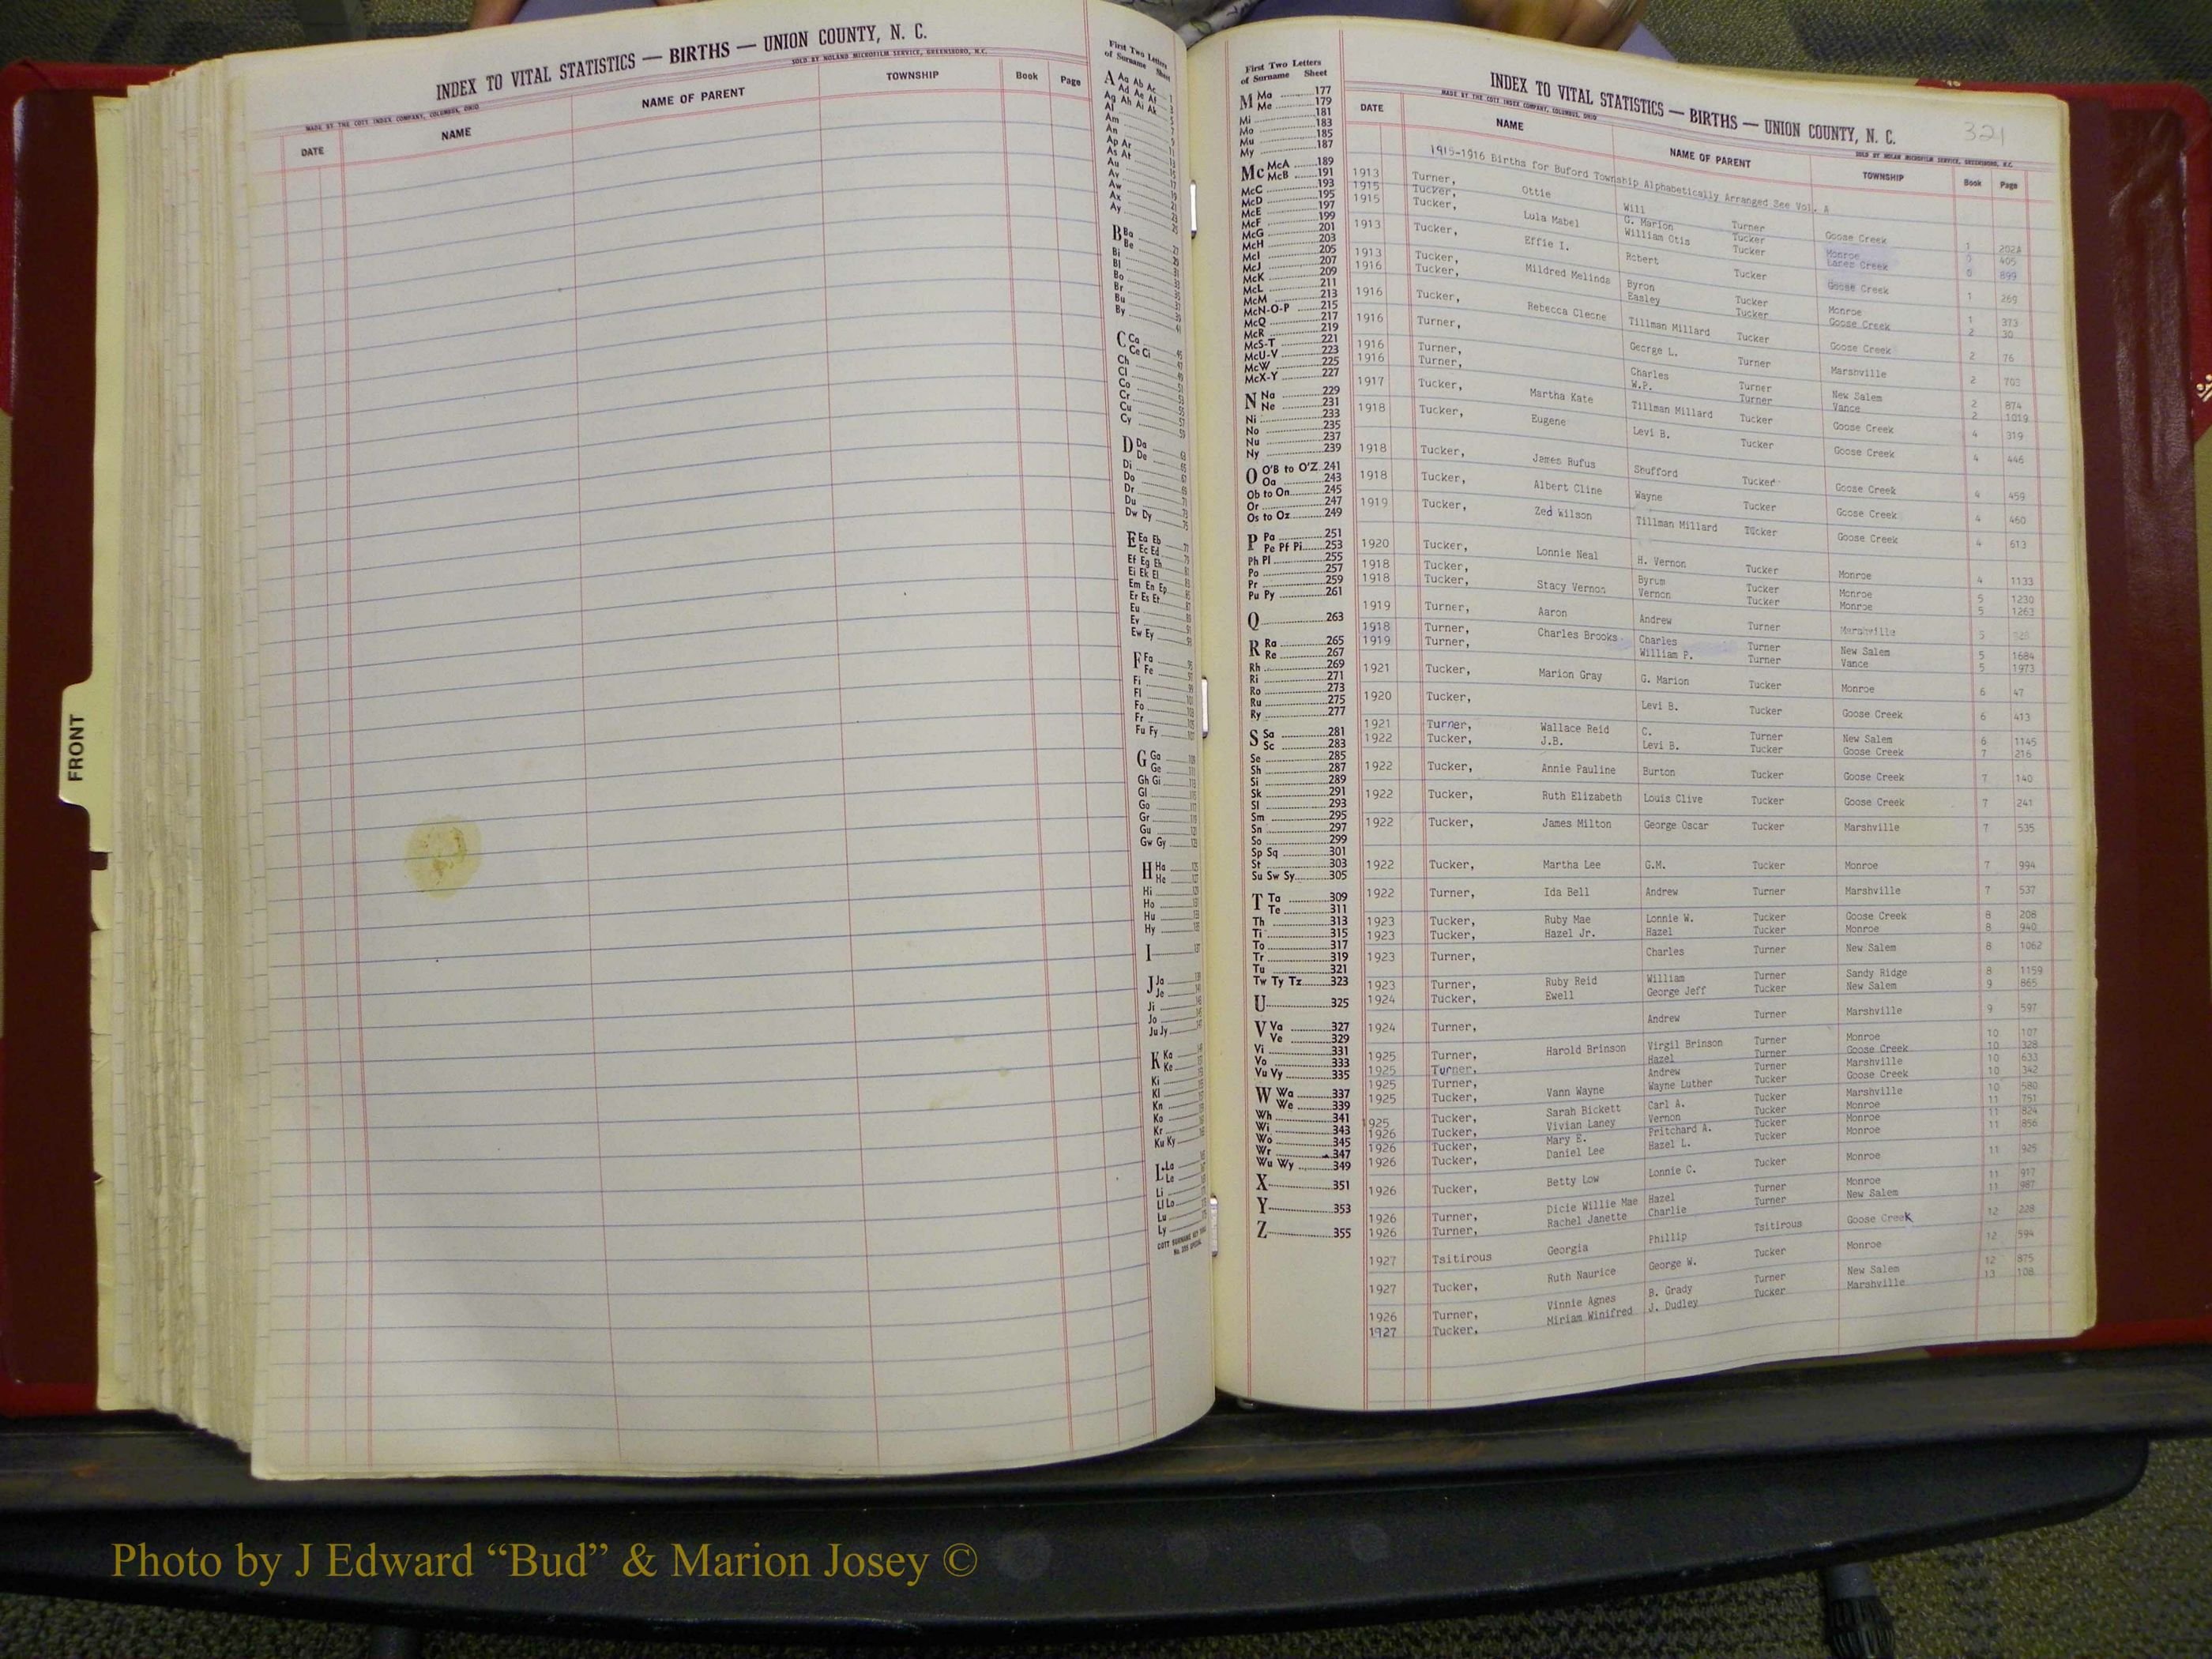 INDEX TO VITAL STATISTICS — BIRTHS — UNION COUNTY, N. C.
MADE BY THE COTT INDEX COMPANY, COLUMBUS, OHIO
SOLD BY NOLAND MICROFILM SERVICE, GREENSBORO, N.C.
DATE NAME NAME OF PARENT TOWNSHIP Book Page
FRONT
First Two Letters
of Surname Sheet
A Aa Ab Ac
Ad Ae Af
Ag Ah Ai Ak
Al
Am
An
Ap Ar
As At
Au
Av
Aw
Ax
Ay
B Ba
Be
Bi
Bl
Bo
Br
Bu
By
C Ca
Ce Ci
Ch
Cl
Co
Cr
Cu
Cy
D Da
De
Di
Do
Dr
Du
Dw Dy
E Ea Eb
Ec Ed
Ef Eg Eh
Ei Ek El
Em En Ep
Er Es Et
Eu
Ev
Ew Ey
F Fa
Fe
Fi
Fl
Fo
Fr
Fu Fy
G Ga
Ge
Gh Gi
Gl
Go
Gr
Gu
Gw Gy
H Ha
He
Hi
Ho
Hu
Hy
I
J Ja
Je
Ji
Jo
Ju Jy
K Ka
Ke
Ki
Kl
Kn
Ko
Kr
Ku Ky
L La
Le
Li
Ll Lo
Lu
Ly
First Two Letters
of Surname Sheet
M Ma 177
Me 179
Mi 181
Mo 183
Mu 185
My 187
Mc McA 189
McB 191
McC 193
McD 195
McE 197
McF 199
McG 201
McH 203
McI 205
McJ 207
McK 209
McL 211
McM 213
McN-O-P 215
McQ 217
McR 219
McS-T 221
McU-V 223
McW 225
McX-Y 227
N Na 229
Ne 231
Ni 233
No 235
Nu 237
Ny 239
O O'B to O'Z 241
Oa 243
Ob to On 245
Or 247
Os to Oz 249
P Pa 251
Pe Pf Pi 253
Ph Pl 255
Po 257
Pr 259
Pu Py 261
Q 263
R Ra 265
Re 267
Rh 269
Ri 271
Ro 273
Ru 275
Ry 277
S Sa 281
Sc 283
Se 285
Sh 287
Si 289
Sk 291
Sl 293
Sm 295
Sn 297
So 299
Sp Sq 301
St 303
Su Sw Sy 305
T Ta 309
Te 311
Th 313
Ti 315
To 317
Tr 319
Tu 321
Tw Ty Tz 323
U 325
V Va 327
Ve 329
Vi 331
Vo 333
Vu Vy 335
W Wa 337
We 339
Wh 341
Wi 343
Wo 345
Wr 347
Wu Wy 349
X 351
Y 353
Z 355
INDEX TO VITAL STATISTICS — BIRTHS — UNION COUNTY, N. C. 321
MADE BY THE COTT INDEX COMPANY, COLUMBUS, OHIO
SOLD BY NOLAN MICROFILM SERVICE, GREENSBORO, N.C.
DATE NAME NAME OF PARENT TOWNSHIP Book Page
1915-1916 Births for Buford Township Alphabetically Arranged See Vol. A
1913 Turner, Ottie Will Turner Goose Creek 1 202A
1915 Tucker, Lula Mabel G. Marion Tucker Monroe 0 405
1915 Tucker, Effie I. William Otis Tucker Lanes Creek 0 899
1913 Tucker, Mildred Melinda Robert Tucker Goose Creek 1 269
1913 Tucker, Byron Tucker Monroe 1 373
1916 Tucker, Rebecca Cleone Easley Tucker Goose Creek 2 30
1916 Tucker, Tillman Millard Tucker Goose Creek 2 76
1916 Turner, George L. Turner Marshville 2 703
1916 Turner, Charles Turner New Salem 2 874
1916 Turner, W.P. Turner Vance 2 1019
1917 Tucker, Martha Kate Tillman Millard Tucker Goose Creek 4 319
1918 Tucker, Eugene Levi B. Tucker Goose Creek 4 446
1918 Tucker, James Rufus Shufford Tucker Goose Creek 4 459
1918 Tucker, Albert Cline Wayne Tucker Goose Creek 4 460
1919 Tucker, Zed Wilson Tillman Millard Tucker Goose Creek 4 613
1920 Tucker, Lonnie Neal H. Vernon Tucker Monroe 4 1133
1918 Tucker, Byrum Tucker Monroe 5 1230
1918 Tucker, Stacy Vernon Vernon Tucker Monroe 5 1263
1919 Turner, Aaron Andrew Turner Marshville 5
1918 Turner, Charles Brooks Charles Turner New Salem 5 1684
1919 Turner, William P. Turner Vance 5 1973
1921 Tucker, Marion Gray G. Marion Tucker Monroe 6 47
1920 Tucker, Levi B. Tucker Goose Creek 6 413
1921 Turner, Wallace Reid C. Turner New Salem 6 1145
1922 Tucker, J.B. Levi B. Tucker Goose Creek 7 216
1922 Tucker, Annie Pauline Burton Tucker Goose Creek 7 140
1922 Tucker, Ruth Elizabeth Louis Clive Tucker Goose Creek 7 241
1922 Tucker, James Milton George Oscar Tucker Marshville 7 535
1922 Tucker, Martha Lee G.M. Tucker Monroe 7 994
1922 Turner, Ida Bell Andrew Turner Marshville 7 537
1923 Tucker, Ruby Mae Lonnie W. Tucker Goose Creek 8 208
1923 Tucker, Hazel Jr. Hazel Tucker Monroe 8 940
1923 Turner, Charles Turner New Salem 8 1062
1923 Turner, Ruby Reid William Turner Sandy Ridge 8 1159
1924 Tucker, Ewell George Jeff Tucker New Salem 9 865
1924 Turner, Andrew Turner Marshville 9 597
1925 Turner, Harold Brinson Virgil Brinson Turner Monroe 10 107
1925 Turner, Hazel Turner Goose Creek 10 328
1925 Turner, Andrew Turner Marshville 10 633
1925 Tucker, Vann Wayne Wayne Luther Tucker Goose Creek 10 342
1925 Tucker, Sarah Bickett Carl A. Tucker Marshville 10 580
1926 Tucker, Vivian Laney Vernon Tucker Monroe 11 751
1926 Tucker, Mary E. Pritchard A. Tucker Monroe 11 824
1926 Tucker, Daniel Lee Hazel L. Tucker Monroe 11 856
1926 Tucker, Betty Low Lonnie C. Tucker Monroe 11 925
1926 Turner, Dicie Willie Mae Hazel Turner Monroe 11 917
1926 Turner, Rachel Janette Charlie Turner New Salem 11 987
1927 Tsitirous Georgia Phillip Tsitirous Goose Creek 12 228
1927 Tucker, Ruth Naurice George W. Tucker Monroe 12 594
1926 Turner, Vinnie Agnes B. Grady Turner New Salem 12 875
1927 Tucker, Miriam Winifred J. Dudley Tucker Marshville 13 108
Photo by J Edward “Bud” & Marion Josey ©